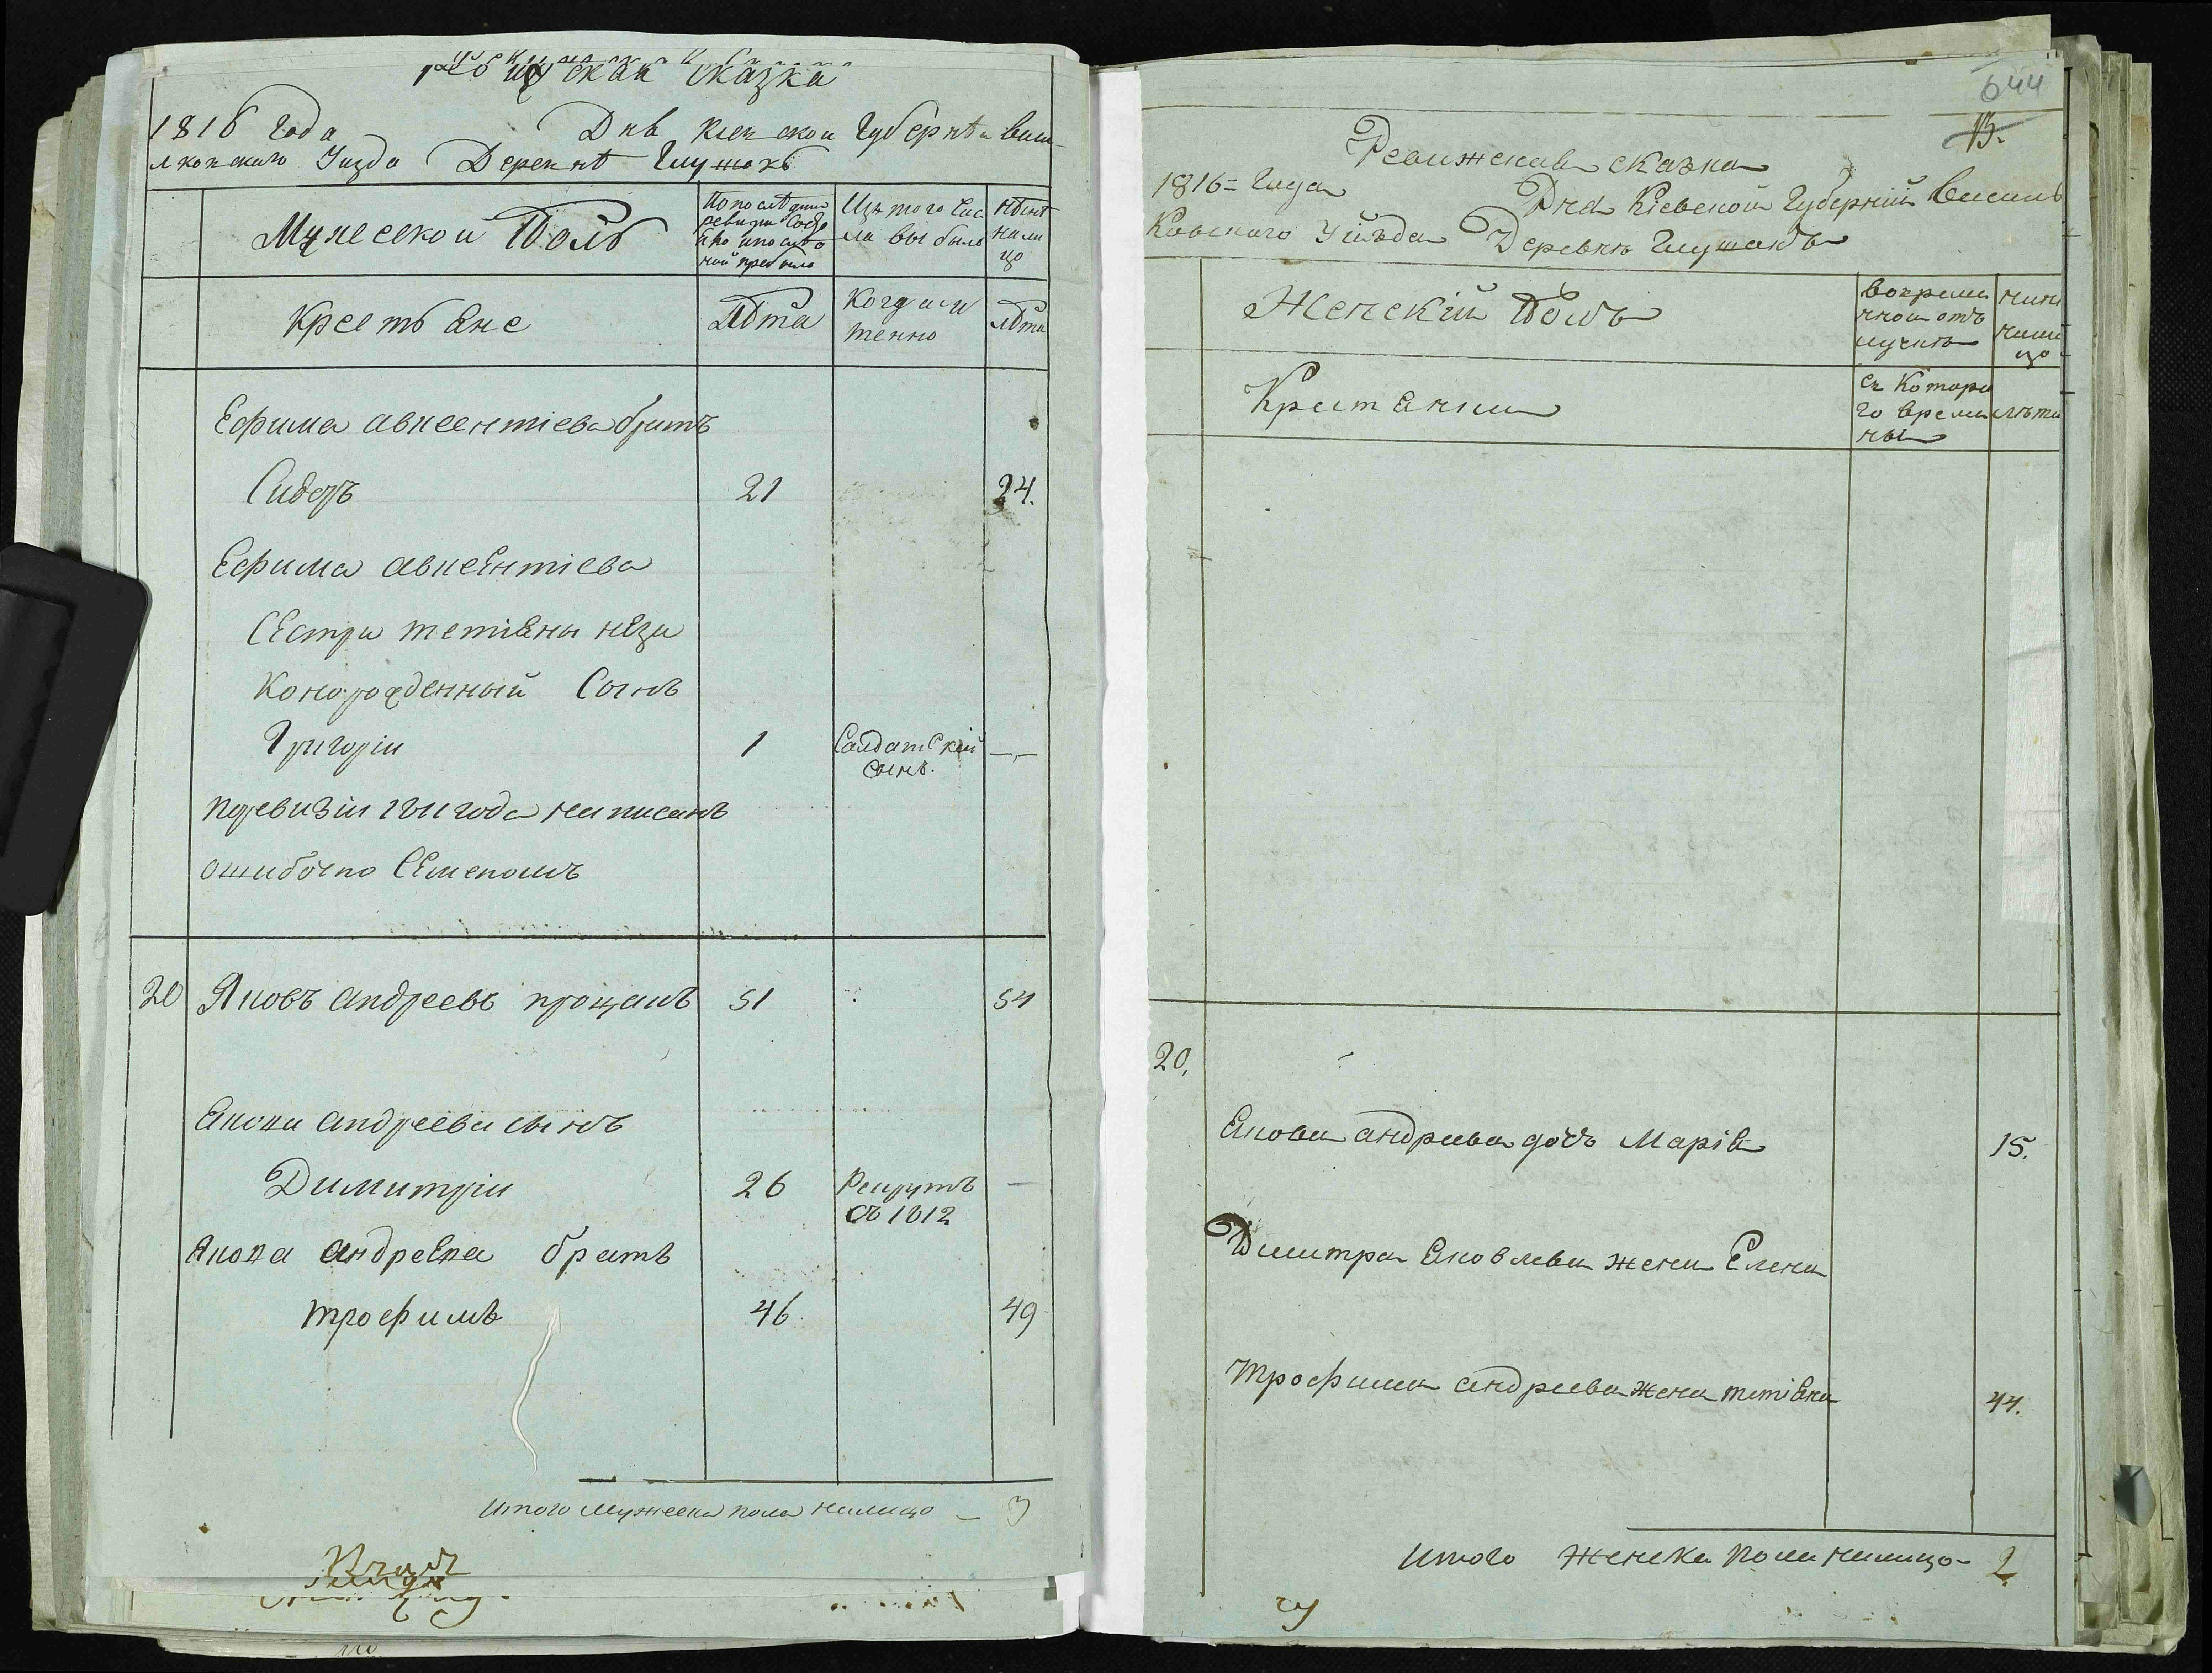 Ревижская сказка
1816 года Дня Киевской Губерніи Василь
ковского Уезда Деревнѣ Глушокъ
Мужеской Полъ
По последней ревизіи состояло и после оной прибыло
Изъ того числа выбыло
Ныне на лицо
Крестьяне
Лѣта
Когда именно
Лѣта
Ефима авксентіева братъ
Сидоръ 21 24.
Ефима авксентіева
Сестри тетіяны неза
конорожденный Сынъ
Григоріи 1 Салдатскій сынъ. —
По ревизіи 1811 года написанъ
ошибочно Семеномъ
20 Яковъ андреевъ прощакъ 51 54
Якова андреева сынъ
Димитріи 26 Рекрутъ съ 1812 —
Якова андреева братъ
трофимъ 46. 49
Итого Мужеска пола налицо — 3
644
13.
Ревижская сказка
1816= Года Дня Кіевской Губерніи Василь
Ковского Уѣзда Деревнѣ Глушокъ
Женскій Полъ
во временной отлучке
ныне налицо
Крестянки
съ Которого времены
лѣта
20.
Якова андреева дочь Марія 15.
Дмитра Яковлева жена Елена
Трофима андреева жена тетіяна 44.
Итого Женска пола налицо — 2